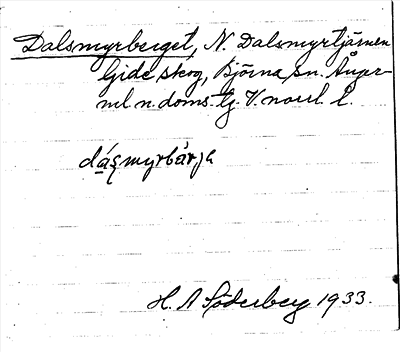 Dalsmyrberget, N. Dalsmyrtjärnen
Gideå skog, Björna sn. Ånger-
ml. n. doms. tg. V. norrl. l.
H. A. Söderberg 1933.